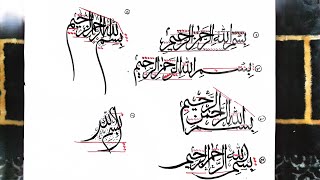 بسم الله الرحمن الرحيم
بسم الله الرحمن الرحيم
بسم الله الرحمن الرحيم
بسم الله الرحمن الرحيم
بسم الله الرحمن الرحيم
بسم الله